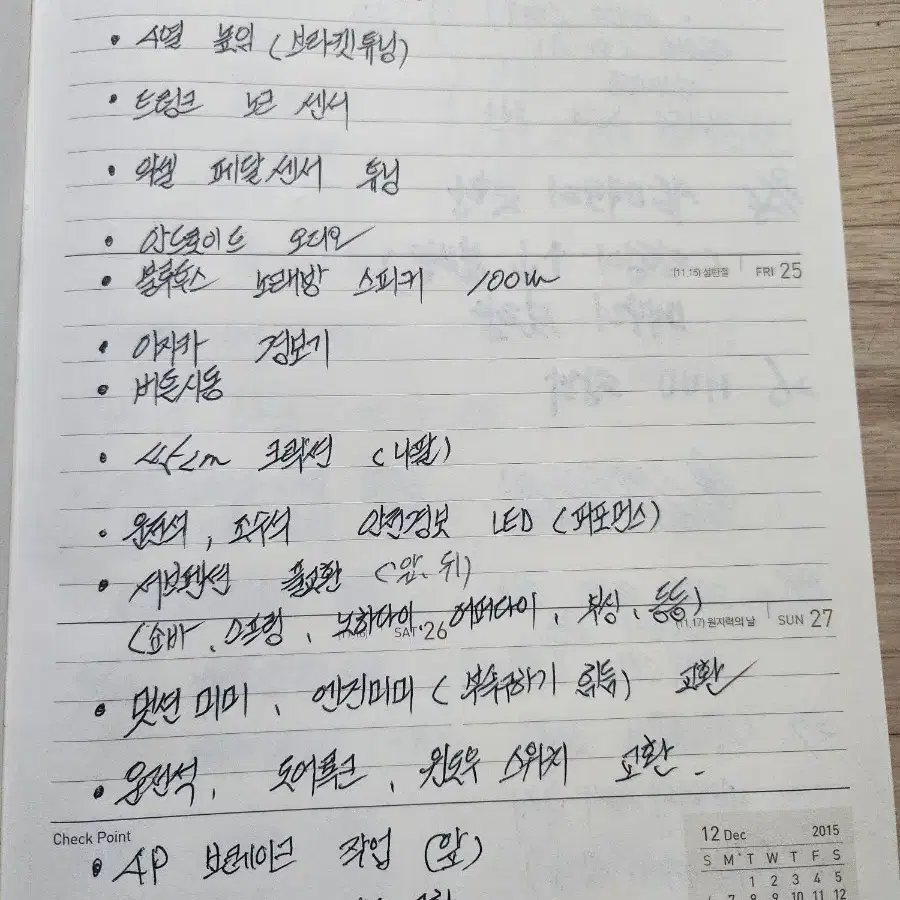 • 4열 높임 (브라켓튜닝)
• 트렁크 노크 센서
• 악셀 페달센서 튜닝
• 안드로이드 오디오
(11.15) 성탄절 FRI 25
• 블루투스 노래방 스피커 100w
• 이지카 경보기
• 버튼시동
• 크락션 (나팔)
• 운전석, 조수석 안전경보 LED (퍼포먼스)
• 서브펜션 풀교환 (앞, 뒤)
(쇼바, 스프링, 노하다이, 어퍼다이, 부싱, 등등)
SAT 26 (11.17) 원자력의 날 SUN 27
• 밋션미미, 엔진미미 (부속구하기 힘듦) 교환
• 운전석, 도어록크, 윈도우 스위치 교환.
Check Point
• AP 브레이크 작업 (앞)
12 Dec 2015
S M T W T F S
1 2 3 4 5
6 7 8 9 10 11 12